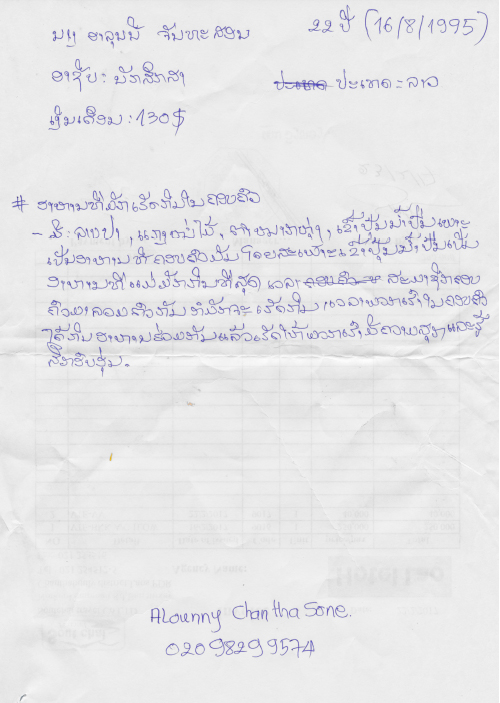 ນາງ ອາລຸນນີ ຈັນທະສອນ 22 ປີ (16/8/1995)
ອາຊີບ: ນັກສຶກສາ ປະເທດ: ລາວ
ເງິນເດືອນ: 130$
# ອາຫານທີ່ມັກເຮັດກິນໃນຄອບຄົວ
- ມີ: ລາບປາ, ແກງໜໍ່ໄມ້, ຕຳໝາກຫຸ່ງ, ເຂົ້າປຸ້ນນ້ຳປີ່ນເພາະ
ເປັນອາຫານທີ່ຄອບຄົວມັກ ໂດຍສະເພາະເຂົ້າປຸ້ນນ້ຳປີ່ນເປັນ
ອາຫານທີ່ແມ່ມັກກິນທີ່ສຸດ ເວລາ ສະມາຊິກຄອບ
ຄົວມາລວມຕົວກັນ ກໍມັກຈະເຮັດກິນ ເວລາພວກເຮົາໃນຄອບຄົວ
ໄດ້ກິນອາຫານຮ່ວມກັນແລ້ວເຮັດໃຫ້ພວກເຮົາມີຄວາມສຸກ ແລະຮູ້
ສຶກອົບອຸ່ນ.
ALounny Chantha Sone.
020 98299574